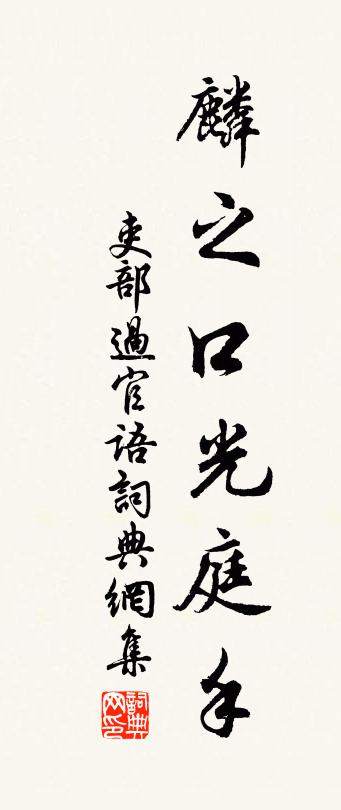 麟之口光庭手
吏部過官語詞典網集
詞典网印